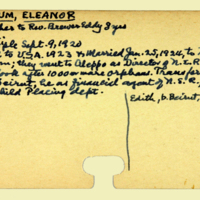 UM, ELEANOR
her to Rev. Brewer Eddy 8 yrs
ple Sept. 9, 1920
to U.S.A. 1923 & Married Jan. 25, 1924, to
; they went to Aleppo as Director of N.E.R
ook after 1000 more orphans. Transfer
Beirut, he as financial agent of N.E.R.
hild Placing dept.
Edith, b. Beirut,